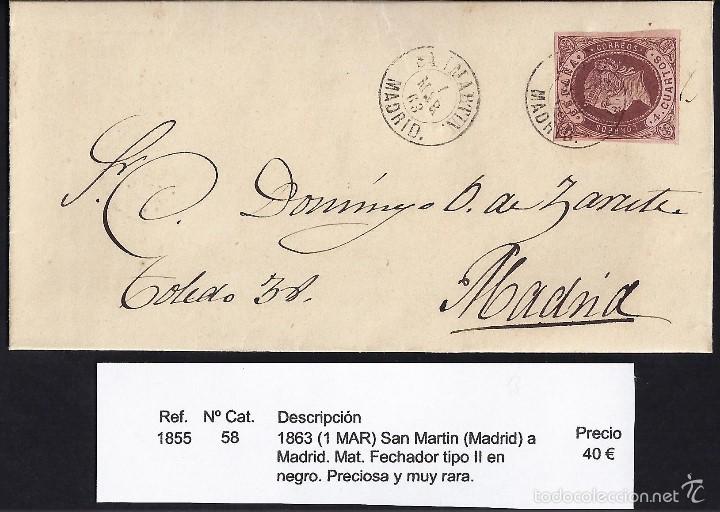 Sr. D. Domingo O. de Zarate.
Toledo 38.
Madrid
S. MARTIN.
1
MAR
63
MADRID.
MADRID.
CORREOS
ESPAÑA
4 CUARTOS
Ref. Nº Cat. Descripción Precio
1855 58 1863 (1 MAR) San Martin (Madrid) a 40 €
Madrid. Mat. Fechador tipo II en
negro. Preciosa y muy rara.
todocoleccion.net